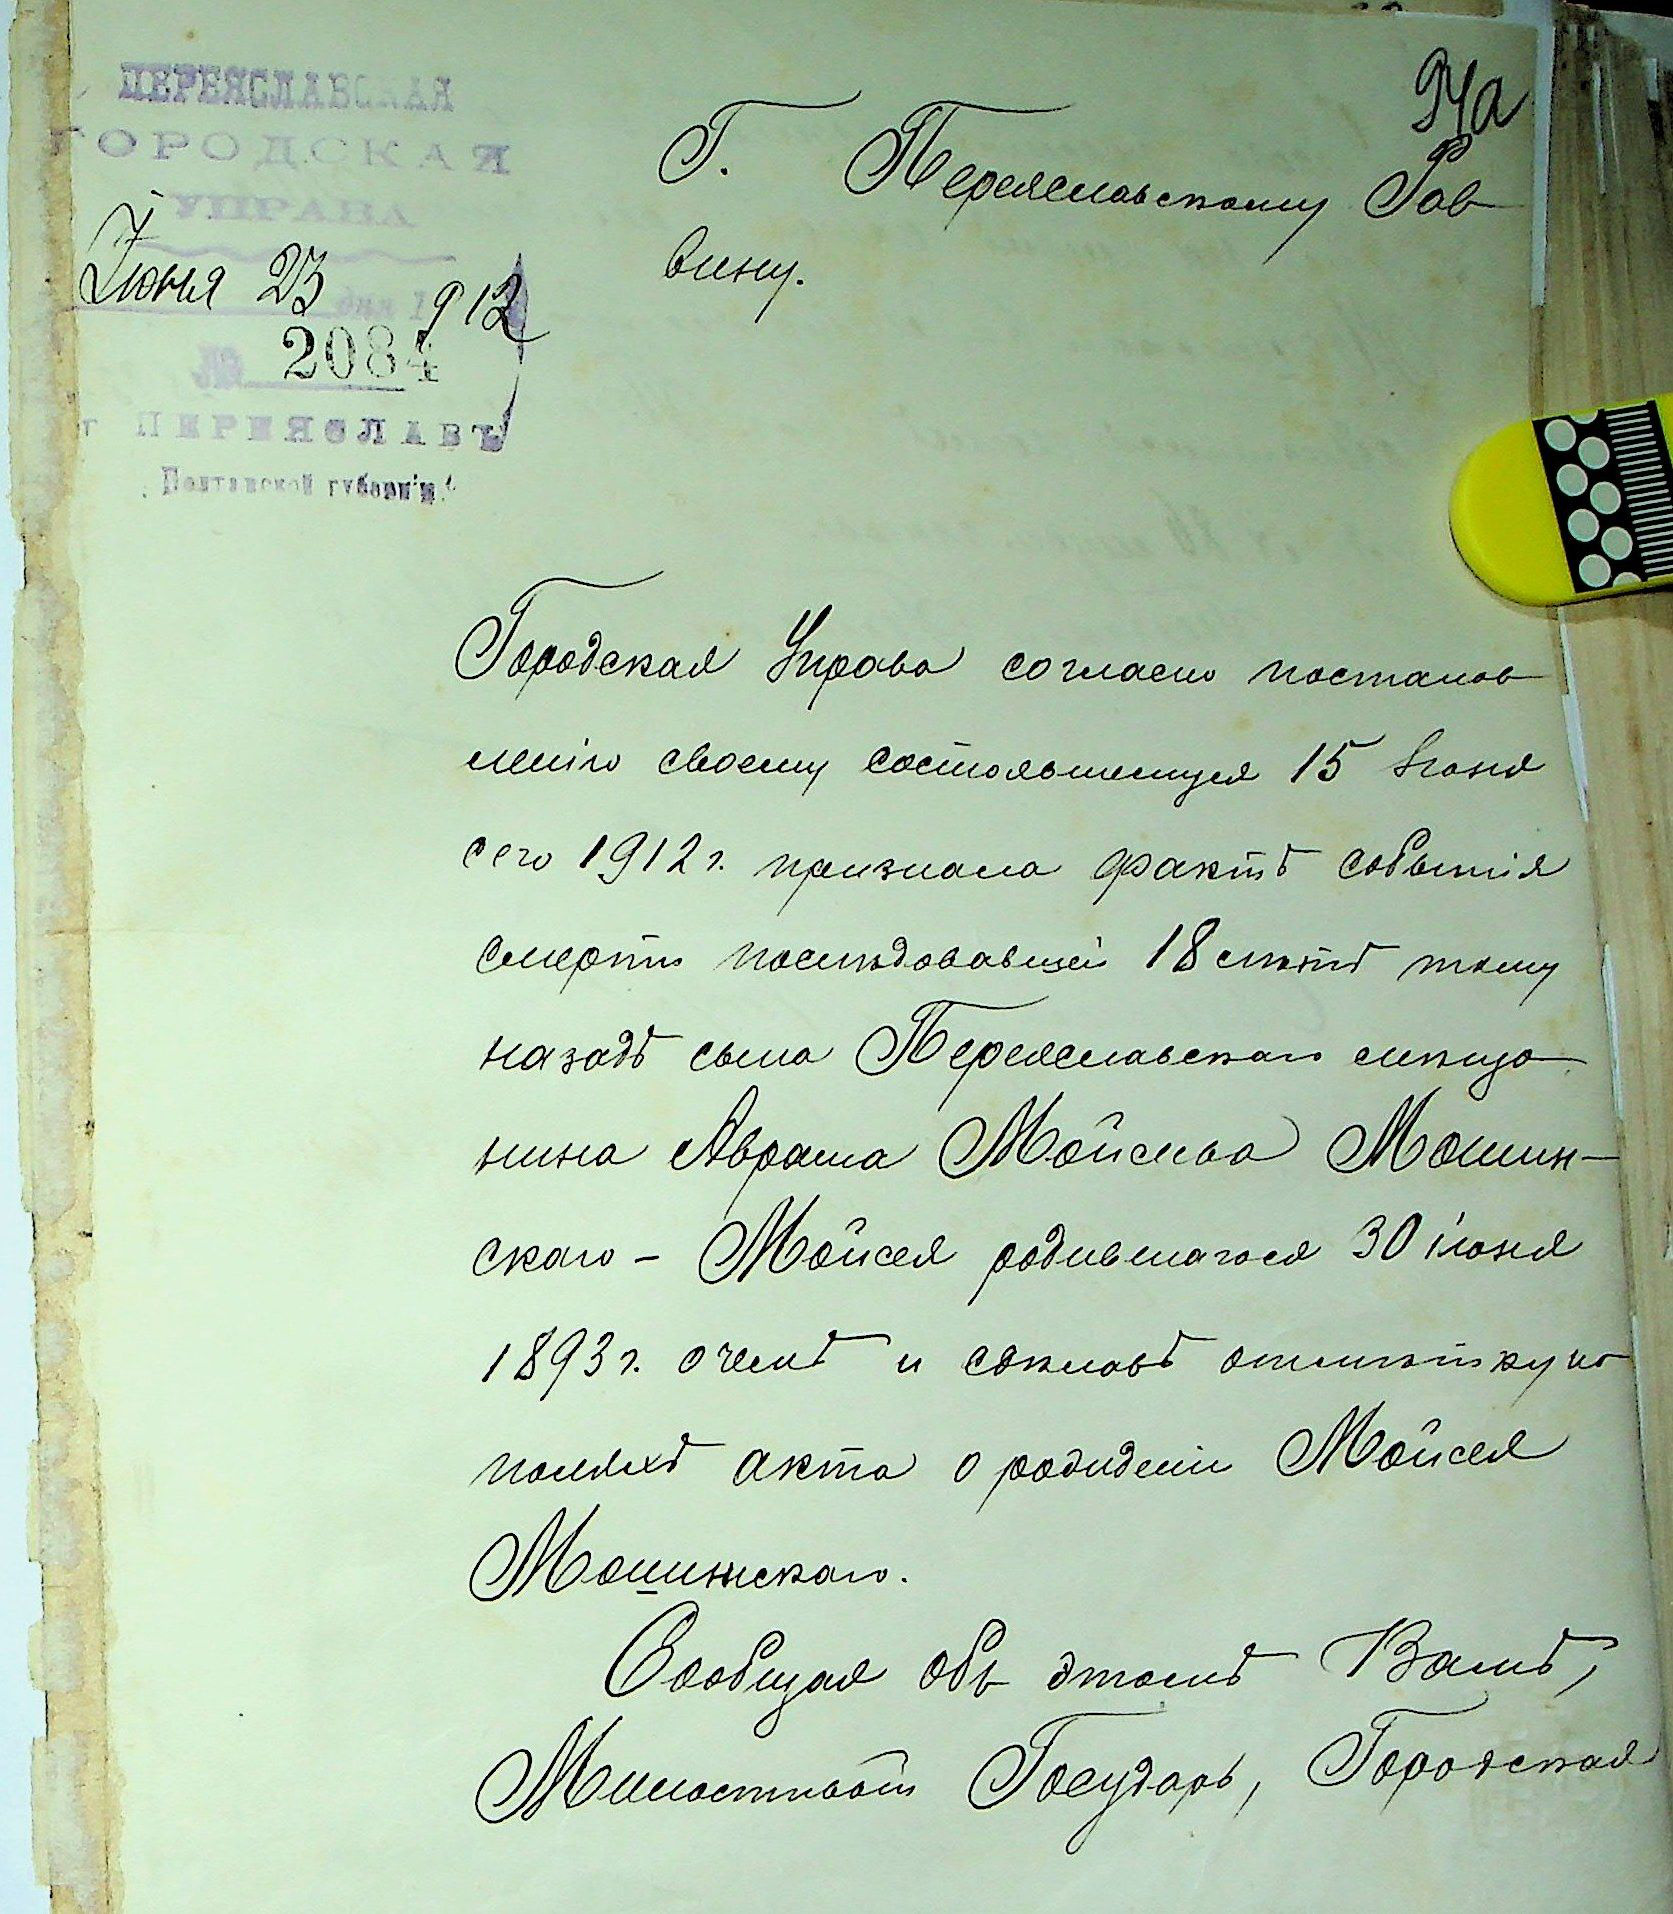 ПЕРЕЯСЛАВСКАЯ
ГОРОДСКАЯ
УПРАВА
Іюня 23 дня 1912
№ 2084
г ПЕРЕЯСЛАВЪ
Полтавской губерніи.
94а
Г. Переяславскому Рав
вину.
Городская Управа согласно постанов
ленію своему состоявшемуся 15 Іюня
сего 1912 г. признала фактъ событія
смерти последовавшей 18 лѣтъ тому
назадъ сына Переяславскаго мѣща
нина Аврама Мойсеева Мошин-
скаго - Мойсея родившагося 30 іюня
1893 г. о чемъ и сдѣлавъ отмѣтку на
поляхъ акта о рождении Мойсея
Мошинскаго.
Сообщая объ этомъ Вамъ,
Милостивый Государь, Городская